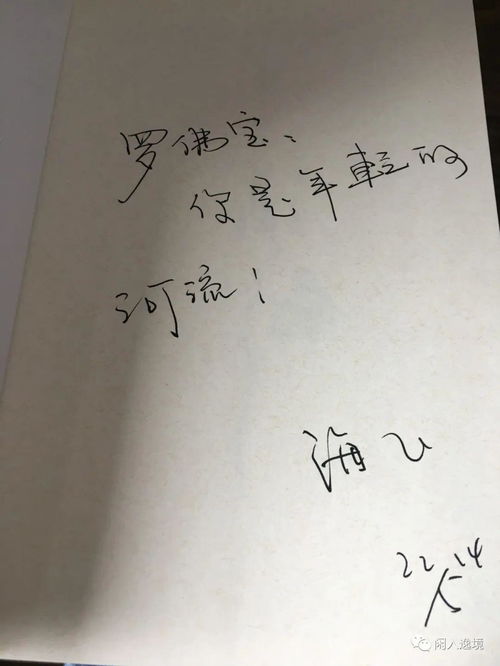 罗佛宝：
你是年轻的
河流！
海飞
闲人逸境